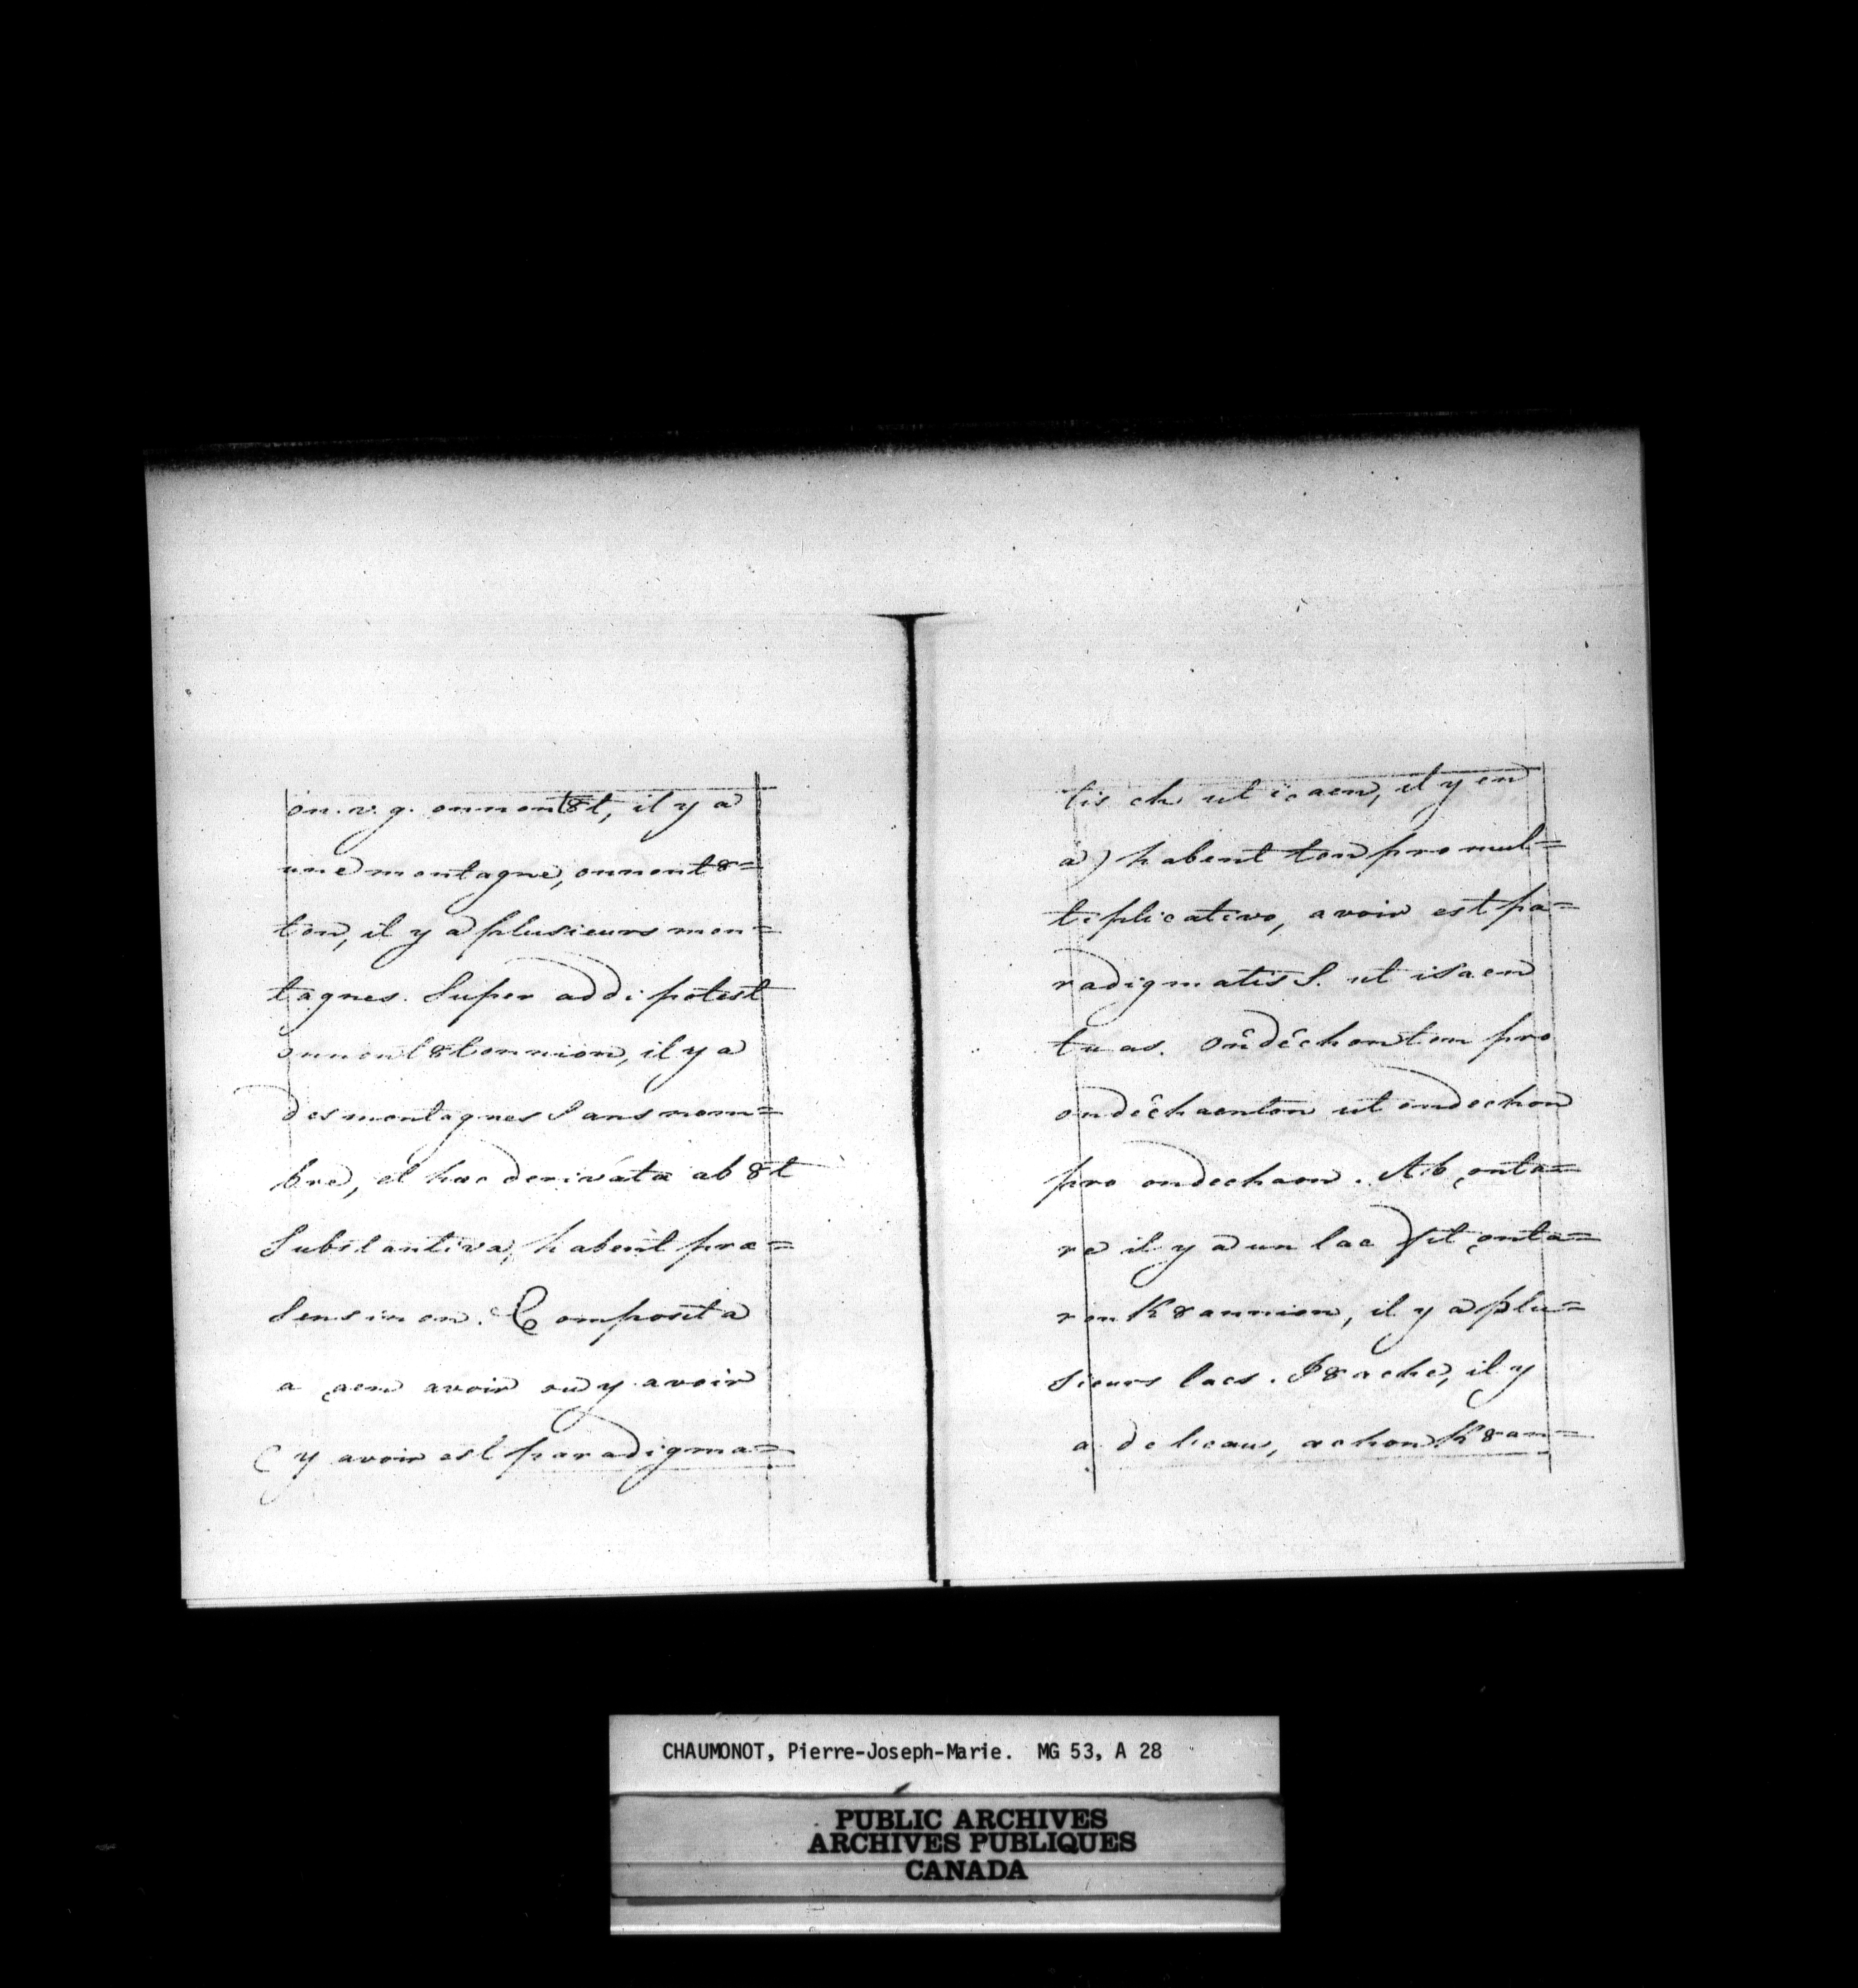 on. v. g. onnont8t, il y a
une montagne, onnont8=
ton, il y a plusieurs mon=
tagnes. Super addi potest
onnont8tonnion, il y a
des montagnes sans nom=
bre, et hæc derivata ab 8t
Substantiva, habent præ=
sens in on. Composita
a çaen avoir ou y avoir
(y avoir est paradigma=
tis ch ut içaen, il y en
a) habent ton pro mul=
tiplicativo, avoir est pa=
radigmatis S. ut isaen
tu as. Ondêchonton pro
ondêchaenton ut ondechon
pro ondechaen. Ab çonta=
re il y a un lac fit çonta=
ronk8annion, il y a plu=
sieurs lacs. I8ache, il y
a de l'eau, achonk8an=
CHAUMONOT, Pierre-Joseph-Marie. MG 53, A 28
PUBLIC ARCHIVES
ARCHIVES PUBLIQUES
CANADA